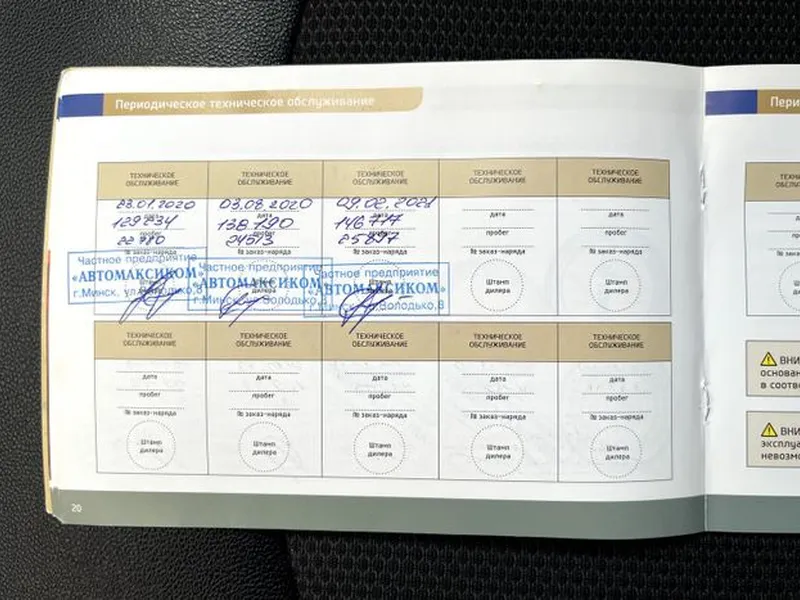 Периодическое техническое обслуживание
Пери
ТЕХНИЧЕСКОЕ
ОБСЛУЖИВАНИЕ
23.01.2020
дата
129234
пробег
22780
№ заказ-наряда
Частное предприятие
«АВТОМАКСИКОМ»
г.Минск, ул.Володько,8
ТЕХНИЧЕСКОЕ
ОБСЛУЖИВАНИЕ
03.08.2020
дата
138790
пробег
24513
№ заказ-наряда
Частное предприятие
«АВТОМАКСИКОМ»
г.Минск, ул.Володько,8
дилера
ТЕХНИЧЕСКОЕ
ОБСЛУЖИВАНИЕ
09.02.2021
дата
146717
пробег
№ заказ-наряда
Частное предприятие
«АВТОМАКСИКОМ»
г.Минск, ул.Володько,8
ТЕХНИЧЕСКОЕ
ОБСЛУЖИВАНИЕ
дата
пробег
№ заказ-наряда
Штамп
дилера
ТЕХНИЧЕСКОЕ
ОБСЛУЖИВАНИЕ
дата
пробег
№ заказ-наряда
Штамп
дилера
ТЕХНИЧЕСКОЕ
ОБСЛУЖИВАНИЕ
дата
пробег
№ заказ-наряда
Штамп
дилера
ТЕХНИЧЕСКОЕ
ОБСЛУЖИВАНИЕ
дата
пробег
№ заказ-наряда
Штамп
дилера
ТЕХНИЧЕСКОЕ
ОБСЛУЖИВАНИЕ
дата
пробег
№ заказ-наряда
Штамп
дилера
ТЕХНИЧЕСКОЕ
ОБСЛУЖИВАНИЕ
дата
пробег
№ заказ-наряда
Штамп
дилера
ТЕХНИЧЕСКОЕ
ОБСЛУЖИВАНИЕ
дата
пробег
№ заказ-наряда
Штамп
дилера
20
ТЕХН
ОБСЛУ
№ зак
Ш
ди
ВНИ
основан
в соотве
ВНИ
эксплуа
невозмо